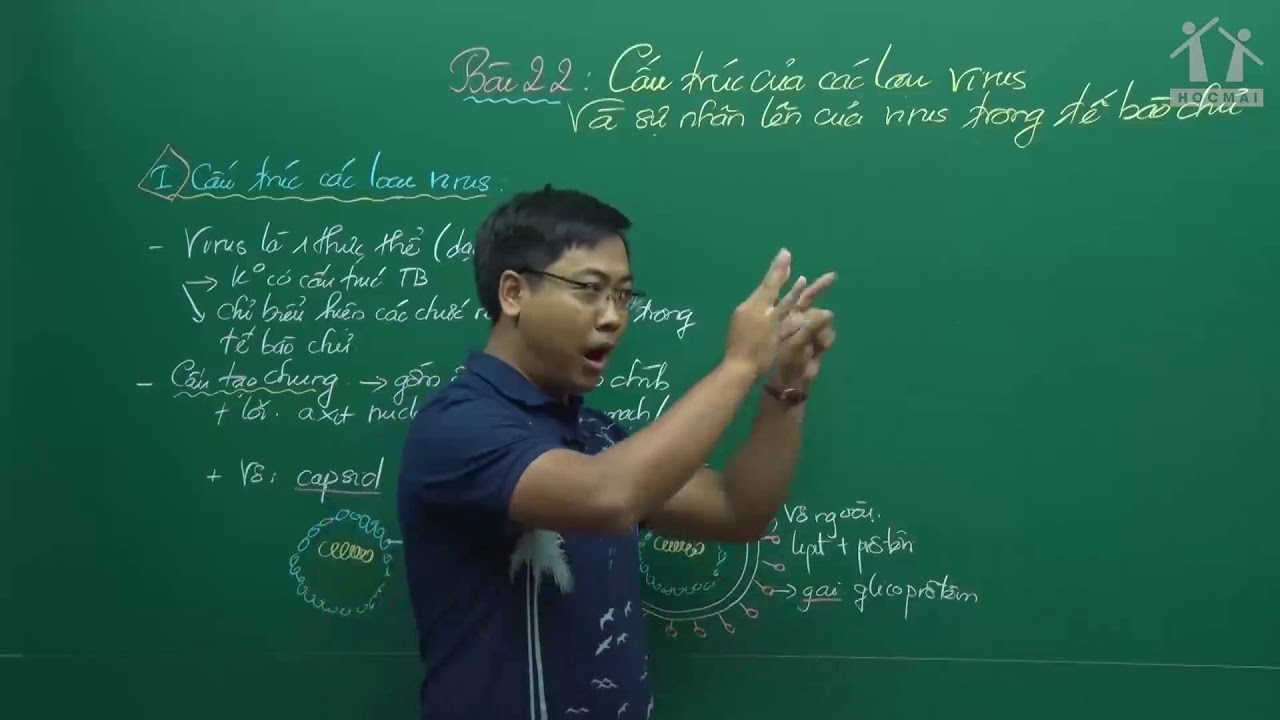 Bài 22: Cấu trúc của các loại virus
Và sự nhân lên của virus trong tế bào chủ
HOCMAI
I Cấu trúc các loại virus:
- Virus là 1 thực thể (dạ
→ K° có cấu trúc TB
→ chỉ biểu hiện các chức trong
tế bào chủ
- Cấu tạo chung → gồm chính
+ lõi: axit nucl mạch
+ Vỏ: capsid
Vỏ ngoài:
lipit + prôtêin
→ gai glicoprôtêin